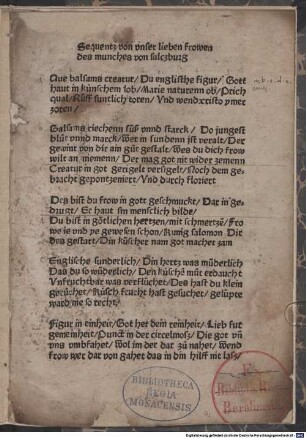 Sequentz von unser lieben frowen
des munches von saltzburg
Ave balsams creatur / Du englische figur / Gott
haut in künschem lob / Marie naturem ob / Prich
qual / Rüff süntlich toren / Und wend xristo ymer
zoren /
Balsams riechenn süß vnnd starck / Do jungest
blüt vnnd marck / Wer in sundenn ist veralt / Der
gewint von dir ain güt gestalt / Wes du dich frow
wilt an nemenn / Der mag got nit wider zemenn
Creatur in got
bracht gepontzemiert / Vnd durch floriert
Des bist du frow in gott geschmuckt / Dar in ge=
Er haut sin menschlich bilde /
Du bist in götlichen hertzen / mit schmertzen / Fro
we ie vnd ye gewesen schon / Kunig salomon Dit
des gestalt / Din küscher nam got macher zam
Englische sunderlich / Din hertz was müderlich
Das du so wüderlich / Den küsche müt erdaucht
Vnfruchtbar was verflüchet / Des hast du klein
gerüchet / Küsch frucht hast gesuchet / gelüpte
ward nie so recht /
Figur in einheit / Got her dem reinheit / Lieb sut
gemeinheit / Punct in der circelmosz / Die got vn
uns vmbfahet / Wol im der dar zü nahet / Wend
frow wer dat von gahet das in din hilff nit lass /
BIBLIOTHECA
REGIA
MONACENSIS